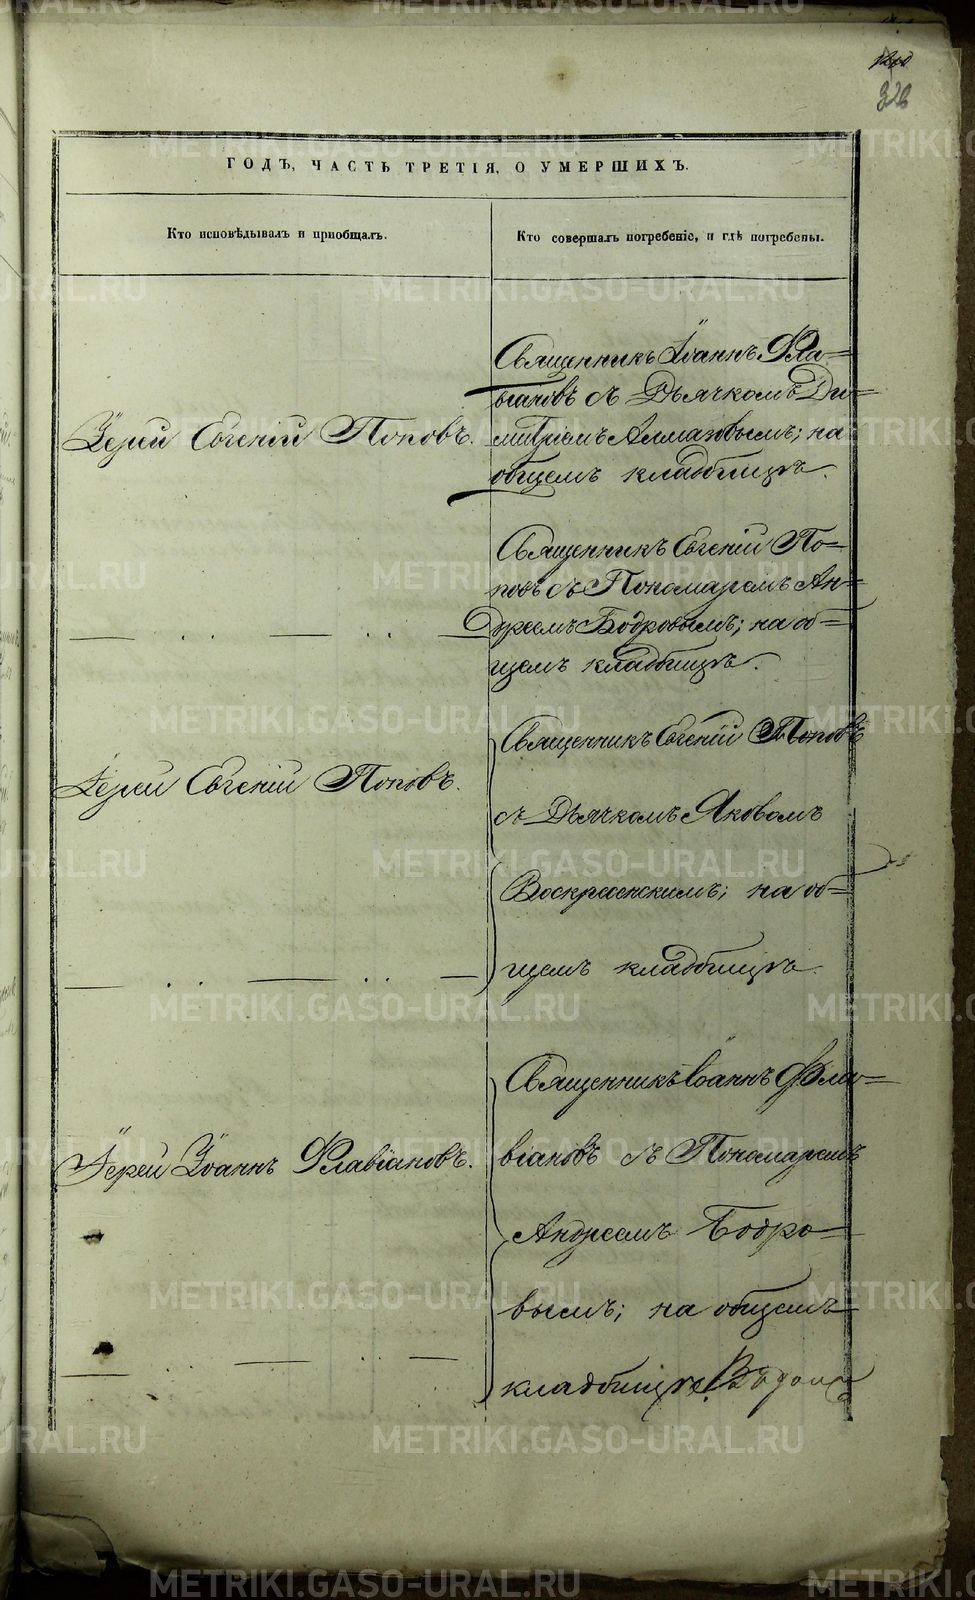 323
ГОДЪ, ЧАСТЬ ТРЕТІЯ, О УМЕРШИХЪ.
Кто исповѣдывалъ и пріобщалъ.
Кто совершалъ погребеніе, и гдѣ погребены.
Іерей Евгеній Поповъ.
Священникъ Іоаннъ Фла=
віановъ съ Дьячкомъ Ди=
митріемъ Алмазовымъ; на
общемъ кладбищѣ.
— . . — . . —
Священникъ Евгеній По=
повъ съ Пономаремъ Ан=
дреемъ Бодровымъ; на об=
щемъ кладбищѣ.
Іерей Евгеній Поповъ.
— . . — . . —
Священникъ Евгеній Поповъ
съ Дьячкомъ Яковомъ
Воскресенскимъ; на об=
щемъ кладбищѣ.
Іерей Іоаннъ Флавіановъ.
— . . — . . —
Священникъ Іоаннъ Фла=
віановъ съ Пономаремъ
Андреемъ Бодро=
вымъ; на общемъ
кладбищѣ.
METRIKI.GASO-URAL.RU